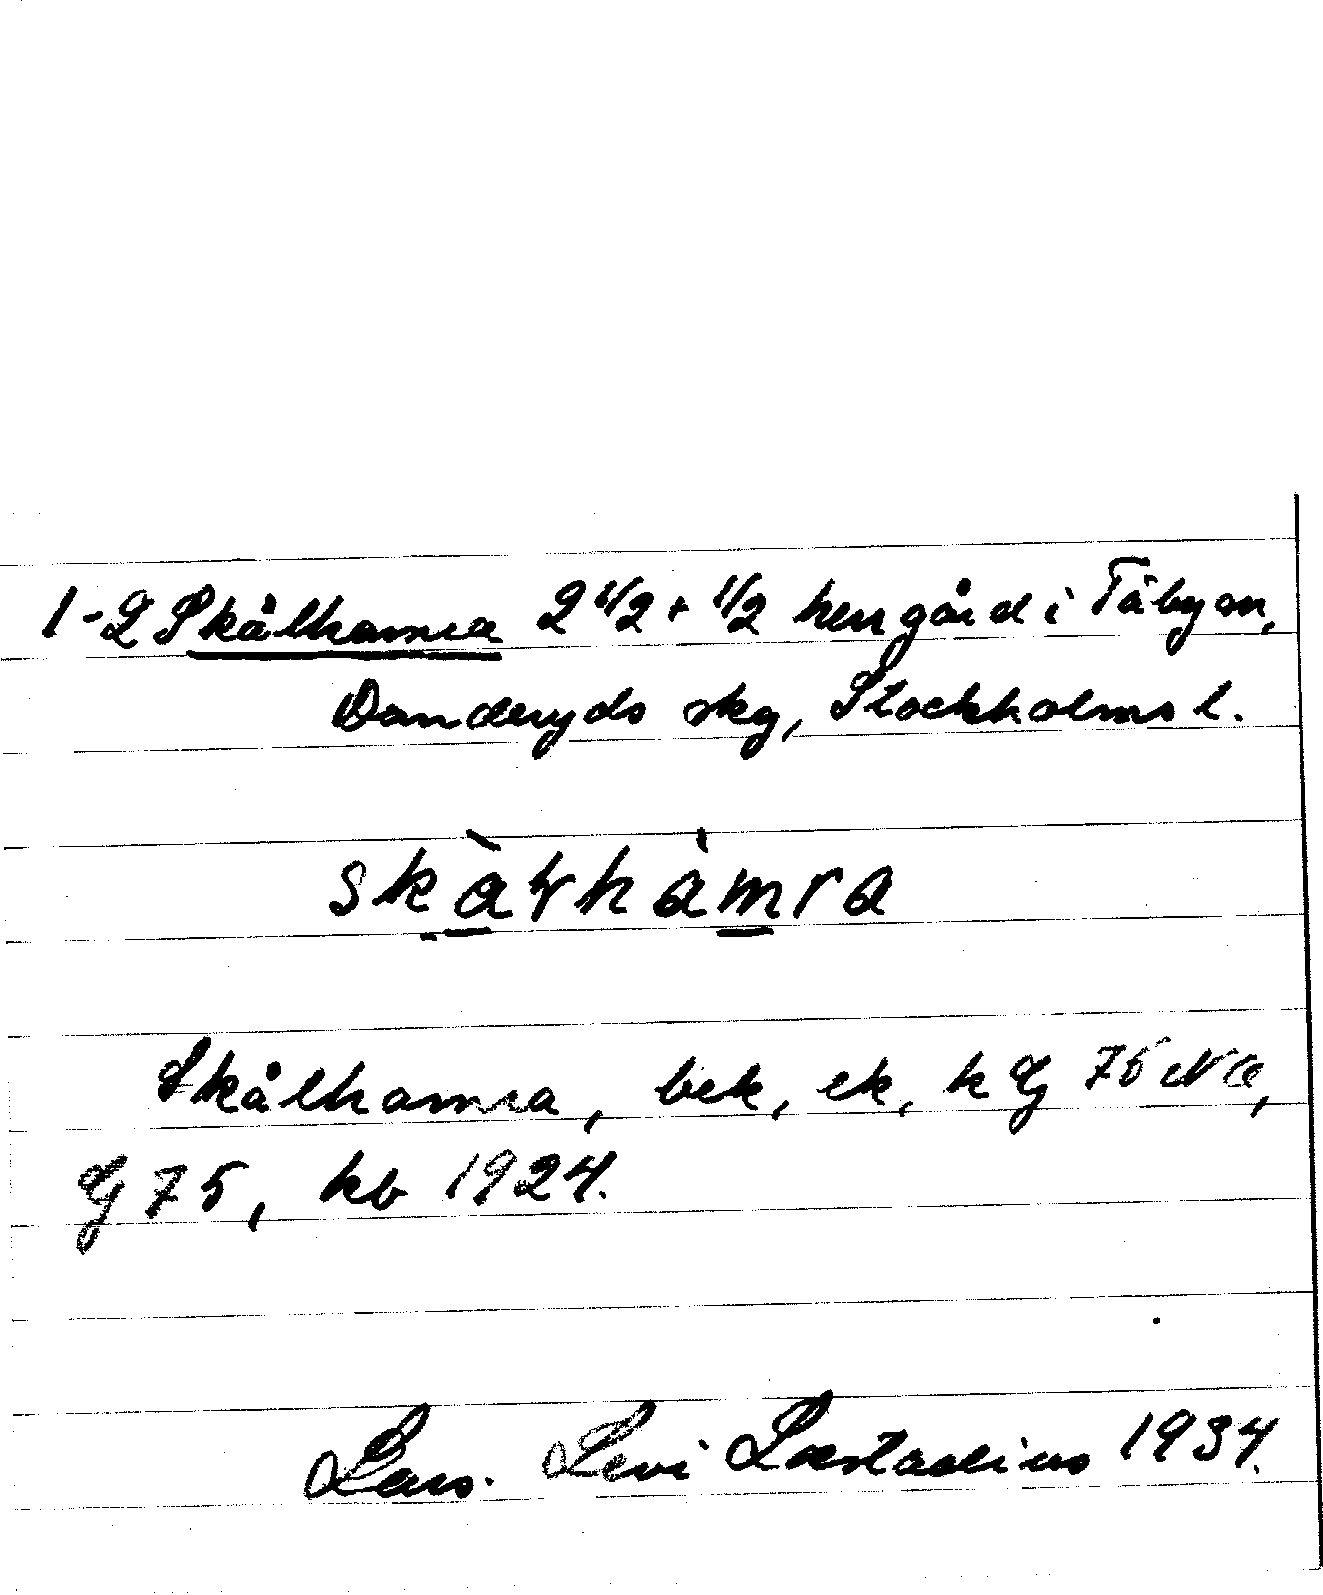 1-2 Skålhamra 2 1/2 + 1/2 hemgård i Täby sn,
Danderyds skg, Stockholms l.
skàrhàmra
Skålhamra, bek, ek, k Lj 75 NO,
Lj 75, kb 1924.
Lars. Levi Læstadius 1934.